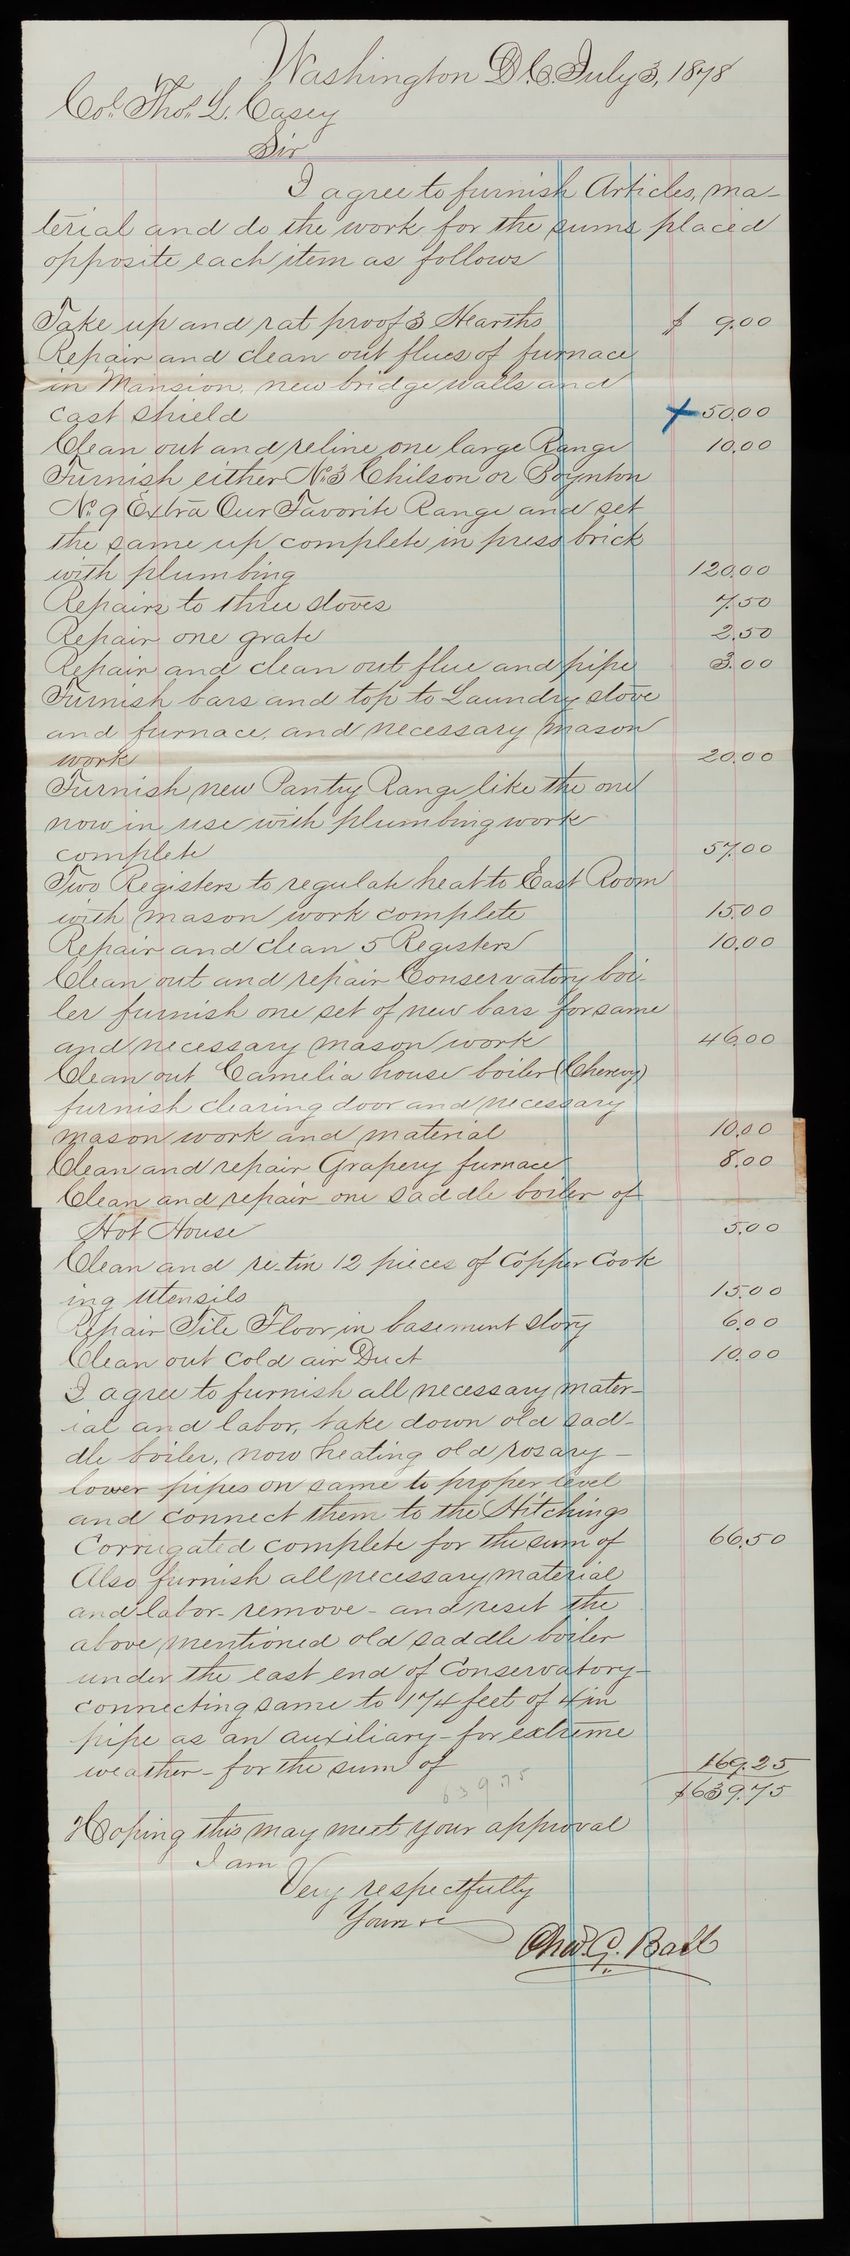 Washington D.C. July 3, 1878
Col. Thos. L. Casey
Sir
I agree to furnish Articles, ma-
terial and do the work for the sums placed
opposite each item as follows
Take up and rat proof 3 Hearths $ 9.00
Repair and clean out flues of furnace
in Mansion, new bridge walls and
cast shield x 50.00
Clean out and reline one large Range 10.00
Furnish either No. 3 Chilson or Boynton
No. 9 Extra Our Favorite Range and set
the same up complete in press brick
with plumbing 120.00
Repairs to three stoves 7.50
Repair one grate 2.50
Repair and clean out flue and pipe 3.00
Furnish bars and top to Laundry stove
and furnace, and necessary mason
work 20.00
Furnish new Pantry Range like the one
now in use with plumbing work
complete 57.00
Two Registers to regulate heat to East Room
with mason work complete 15.00
Repair and clean 5 Registers 10.00
Clean out and repair Conservatory boi-
ler furnish one set of new bars for same
and necessary mason work 46.00
Clean out Camelia house boiler
furnish clearing door and necessary
mason work and material 10.00
Clean and repair Grapery furnace 8.00
Clean and repair one saddle boiler of
Hot House 5.00
Clean and re-tin 12 pieces of Copper Cook
ing Utensils 15.00
Repair Tile Floor in basement story 6.00
Clean out cold air Duct 10.00
I agree to furnish all necessary mater-
ial and labor, take down old sad-
dle boiler, now heating old rosary-
lower pipes on same to proper level
and connect them to the Hitchings
Corrugated complete for the sum of 66.50
Also furnish all necessary material
and labor- remove- and reset the
above mentioned old saddle boiler
under the east end of Conservatory-
connecting same to 174 feet of 4 in
pipe as an auxiliary- for extreme
weather- for the sum of 169.25
639.75 $639.75
Hoping this may meet your approval
I am
Very respectfully
Yours &c
Chas. G. Ball